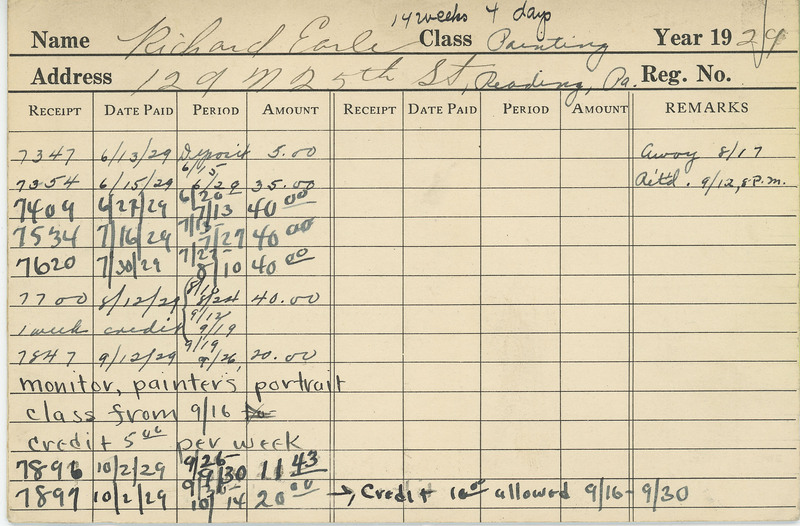 14 weeks 4 days
Name Richard Earle Class Painting Year 1929
Address 129 N 25th St, Reading, Pa. Reg. No.
RECEIPT DATE PAID PERIOD AMOUNT RECEIPT DATE PAID PERIOD AMOUNT REMARKS
7347 6/13/29 Deposit 5.00 Away 8/17
6/15
7354 6/15/29 6/29 35.00 Ret'd. 9/12, 8 P.m.
7409 6/27/29 7/13 40 00
7/13
7534 7/16/29 7/27 40 00
7/27
7620 7/30/29 8/10 40 00
8/10
7700 8/12/29 8/24 40.00
9/12
1 week credit 9/19
9/19
7847 9/12/29 9/26, 20.00
monitor, painters portrait
class from 9/16
credit 5 00 per week
9/26
7896 10/2/29 9/30 11 43
9/30
7897 10/2/29 10/14 20 00 → Credit 10 00 allowed 9/16 - 9/30